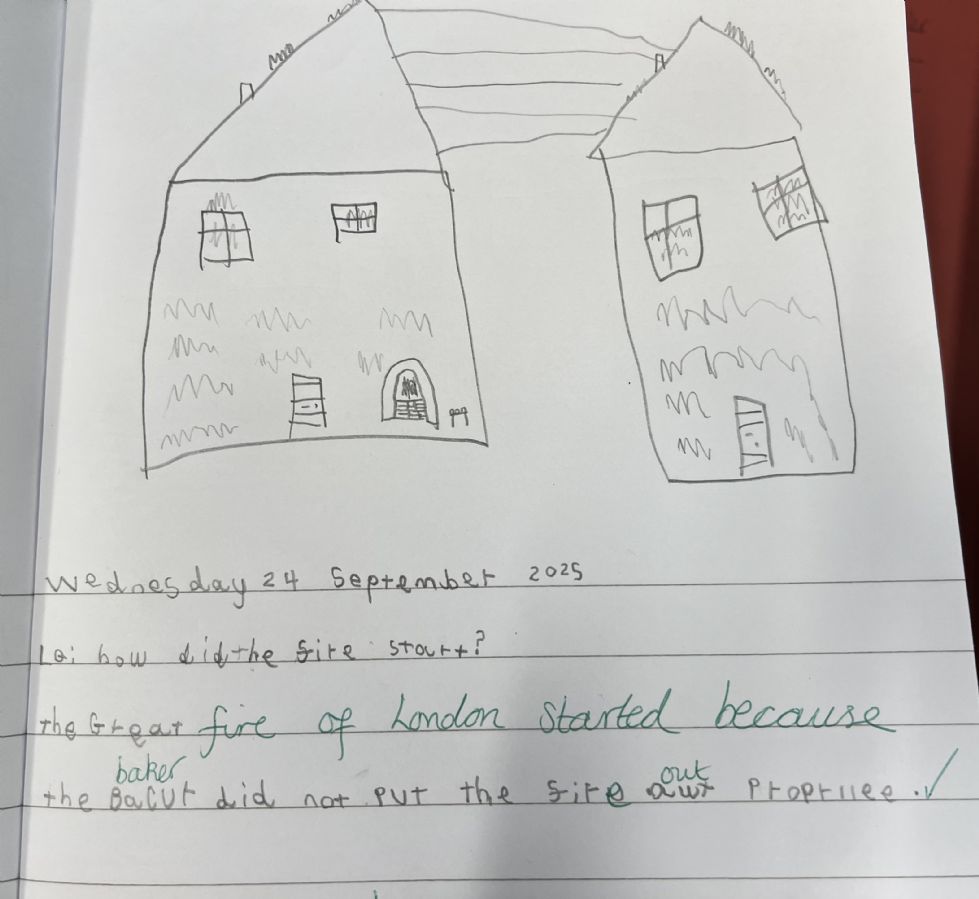 Wednesday 24 September 2025
LQ: how did the fire start?
the Great fire of London started because
baker out
the Bacur did not put the fire awt propriiee.